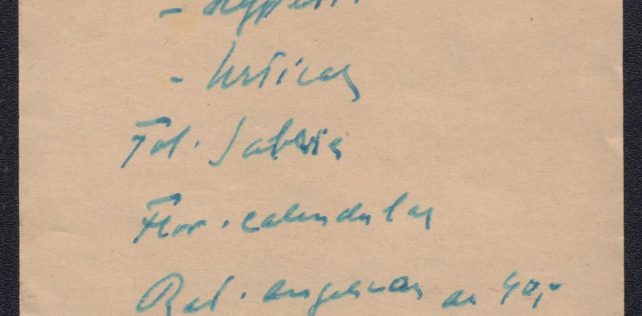 - Hyperici
- Urticae
Fol. Salviae
Flor. calendulae
Rad. angelicae aa 40,-